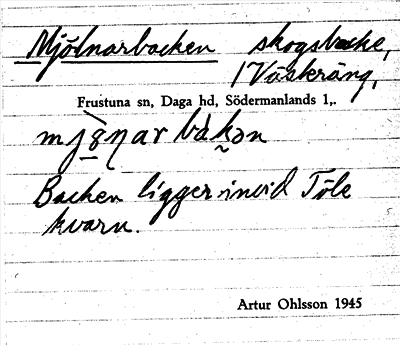 Mjölnarbacken skogsbacke,
/ Väskräng,
Frustuna sn, Daga hd, Södermanlands l,.
Backen ligger invid Töle
kvarn.
Artur Ohlsson 1945